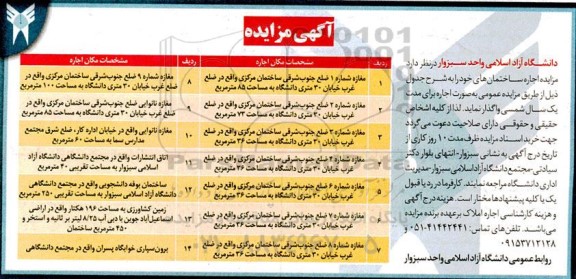 آگهی مزایده
دانشگاه آزاد اسلامی واحد سبزوار درنظر دارد
مزایده اجاره ساختمان های خود را به شرح جدول
ذیل از طریق مزایده عمومی به صورت اجاره برای مدت
یک سال شمسی واگذار نماید. لذا از کلیه اشخاص
حقیقی و حقوقی دارای صلاحیت دعوت می گردد
جهت خرید اسناد مزایده ظرف مدت ۱۰ روز کاری از
تاریخ درج آگهی به نشانی سبزوار- انتهای بلوار دکتر
سیادتی- مجتمع دانشگاه آزاد اسلامی سبزوار - مدیریت
اداری دانشگاه مراجعه نمایند. کارفرما در رد یا قبول
یک یا کلیه پیشنهادها مختار است. هزینه درج آگهی
و هزینه کارشناسی اجاره املاک بر عهده برنده مزایده
می باشد. تلفن های تماس: ۴۱۴۴۲۴۴۱-۰۵۱ و
۰۹۱۵۳۷۱۲۱۲۸
روابط عمومی دانشگاه آزاد اسلامی واحد سبزوار
ردیف مشخصات مکان اجاره
۱ مغازه شماره ۱ ضلع جنوب‌شرقی ساختمان مرکزی واقع در ضلع
غرب خیابان ۳۰ متری دانشگاه به مساحت ۸۵ مترمربع
۲ مغازه شماره ۲ ضلع جنوب‌شرقی ساختمان مرکزی واقع در ضلع
غرب خیابان ۳۰ متری دانشگاه به مساحت ۷۳ مترمربع
۳ مغازه شماره ۳ ضلع جنوب‌شرقی ساختمان مرکزی واقع در ضلع
غرب خیابان ۳۰ متری دانشگاه به مساحت ۳۶ مترمربع
ضلع جنوب‌شرقی ساختمان مرکزی واقع در ضلع
غرب خیابان ۳۰ متری دانشگاه به مساحت ۳۶ مترمربع
۵ مغازه شماره ۶ ضلع جنوب‌شرقی ساختمان مرکزی واقع در ضلع
غرب خیابان ۳۰ متری دانشگاه به مساحت ۳۶ مترمربع
مغازه شماره ۷ ضلع جنوب‌شرقی ساختمان مرکزی واقع در ضلع
غرب خیابان ۳۰ متری دانشگاه به مساحت ۳۶ مترمربع
۷ مغازه شماره ۸ ضلع جنوب‌شرقی ساختمان مرکزی واقع در ضلع
غرب خیابان ۳۰ متری دانشگاه به مساحت ۳۶ مترمربع
ردیف مشخصات مکان اجاره
۸ مغازه شماره ۹ ضلع جنوب‌شرقی ساختمان مرکزی واقع در
ضلع غرب خیابان ۳۰ متری دانشگاه به مساحت ۱۰۰ مترمربع
۹ مغازه نانوایی ضلع جنوب‌شرقی ساختمان مرکزی واقع در
ضلع غرب خیابان ۳۰ متری دانشگاه به مساحت ۸۵ مترمربع
۱۰ مغازه نانوایی واقع در خیابان اداره کار، ضلع شرق مجتمع
مدارس سما به مساحت ۶۰ مترمربع
۱۱ اتاق انتشارات واقع در مجتمع دانشگاهی دانشگاه آزاد
اسلامی سبزوار به مساحت تقریبی ۴۰ مترمربع
۱۲ ساختمان بوفه دانشجویی واقع در مجتمع دانشگاهی
دانشگاه آزاد اسلامی سبزوار به مساحت تقریبی ۲۵۰ مترمربع
۱۳ زمین کشاورزی به مساحت ۱۹۶ هکتار واقع در اراضی
اسماعیل‌آباد جوین با دبی آب ۸/۲۵ لیتر بر ثانیه و استخر و
۴۵۰ مترمربع ساختمان
۱۴ برون‌سپاری خوابگاه پسران واقع در مجتمع دانشگاهی